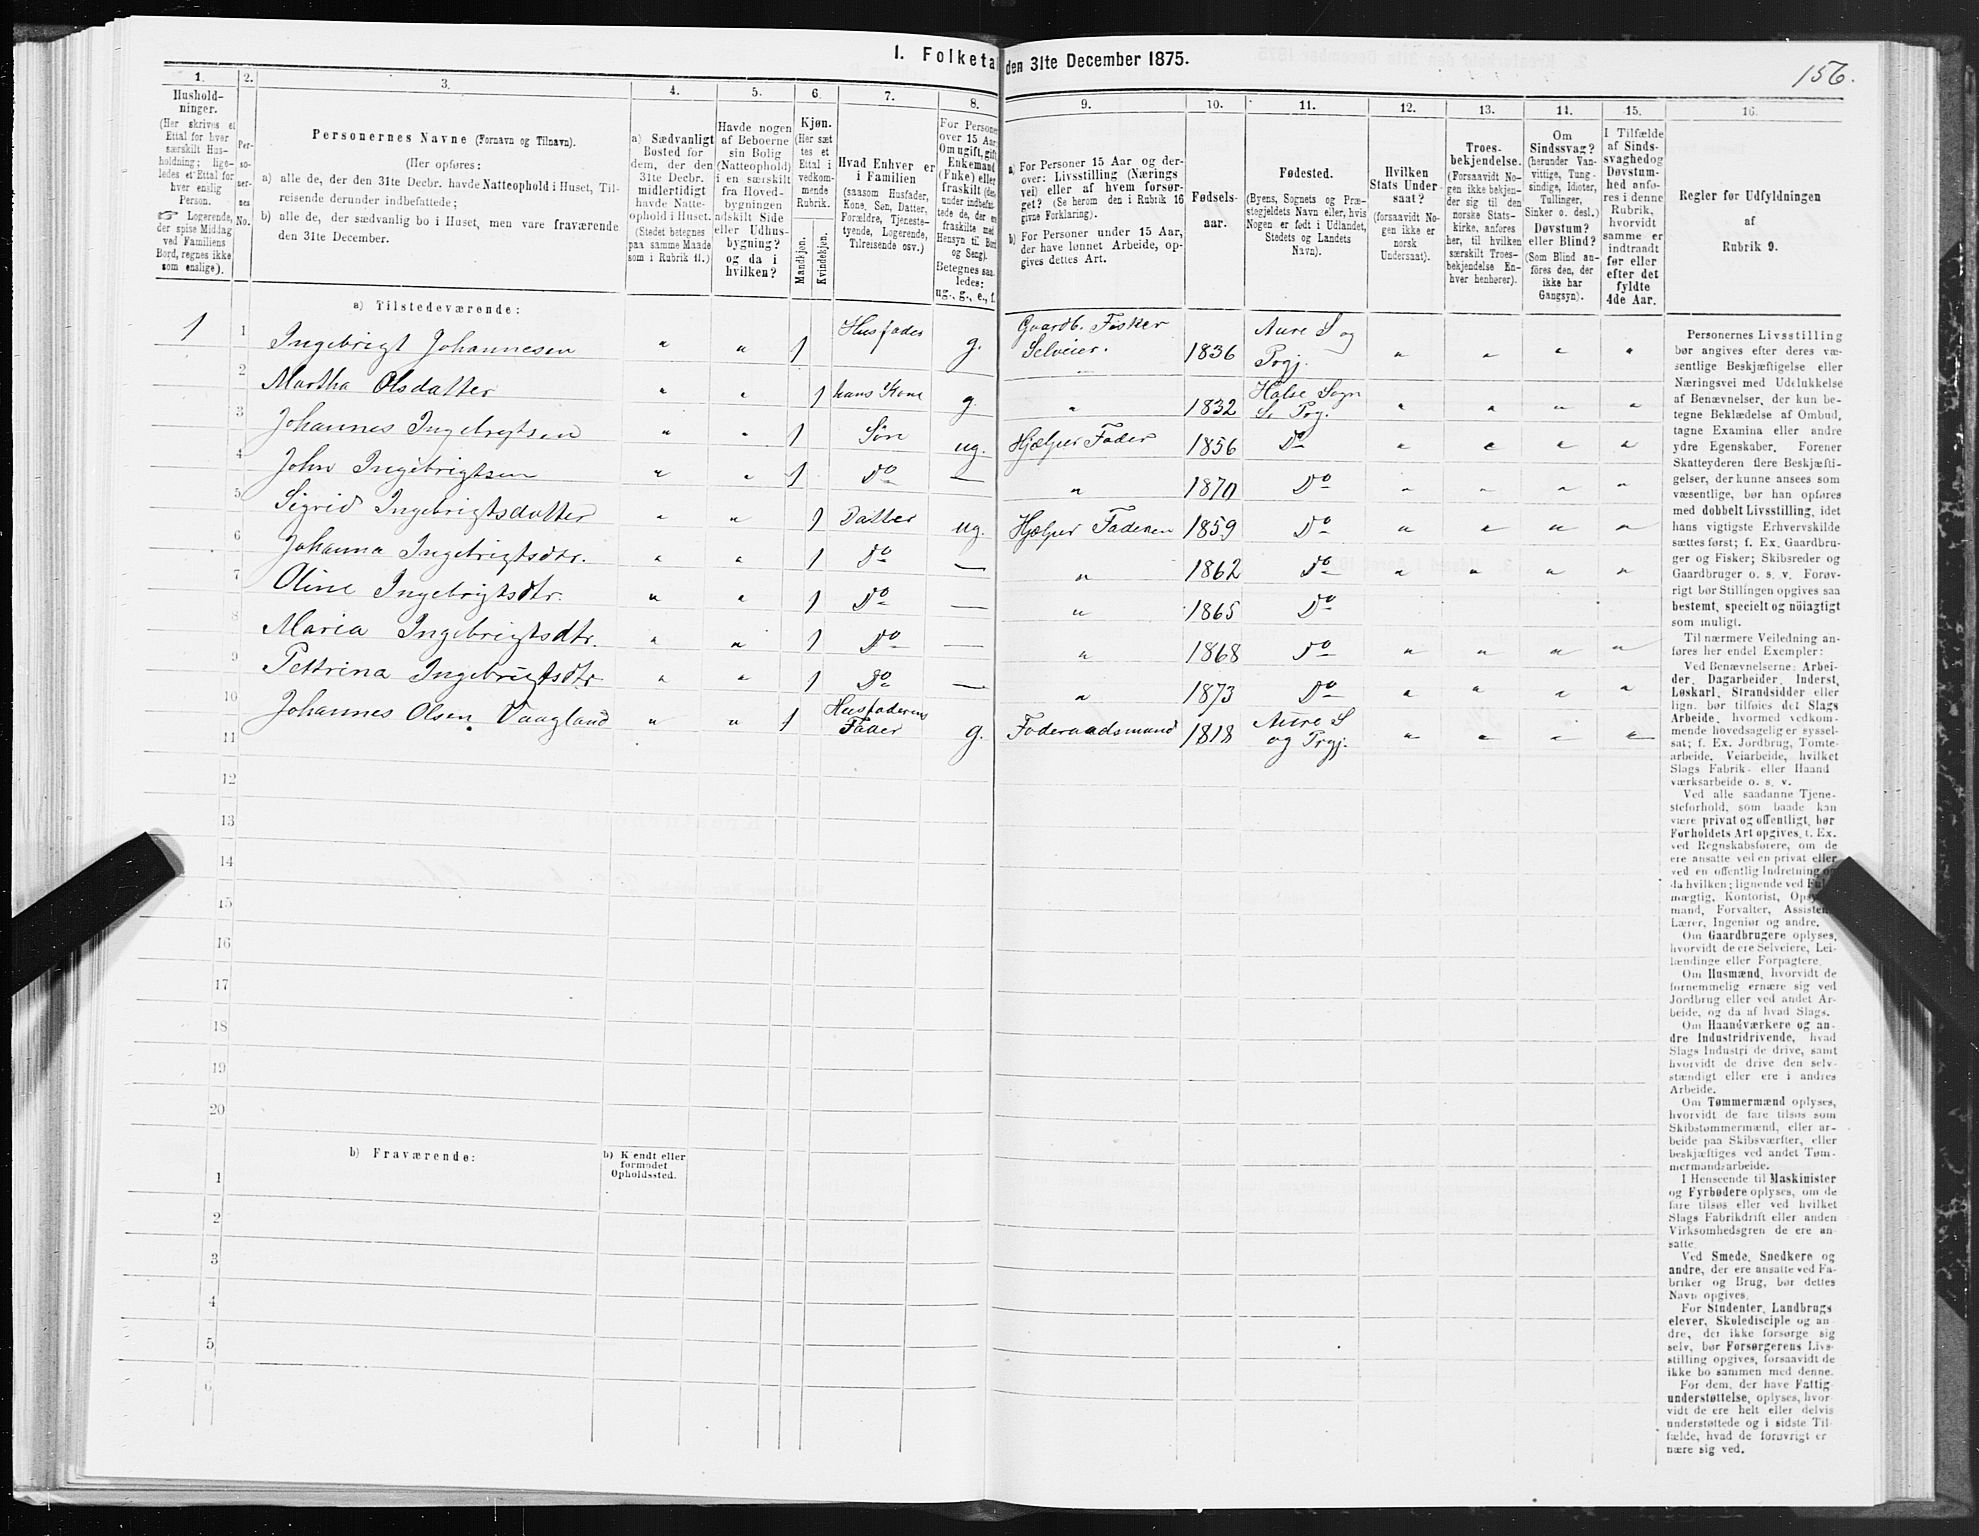 1. Folketal den 31te December 1875.
156.
1.
2.
3.
4.
5.
6.
7.
8.
9.
10.
11.
12.
13.
14.
15.
16.
Hushold-
ninger.
(Her skrives et
Ettal for hver
særskilt Hus-
holdning; lige-
ledes et Ettal for
hver enslig
Person.
☞ Logerende,
der spise Middag
ved Familiens
Bord, regnes ikke
som enslige).
Per-
so-
ner-
nes
No.
Personernes Navne (Fornavn og Tilnavn).
(Her opføres:
a) alle de, der den 31te Decbr. havde Natteophold i Huset, Til-
reisende derunder indbefattede;
b) alle de, der sædvanlig bo i Huset, men vare fraværende
den 31te December.
a) Sædvanligt
Bosted for
dem, der den
31te Decbr.
midlertidigt
havde Natte-
ophold i Huset.
(Stedet betegnes
paa samme Maade
som i Rubrik 11.)
Havde nogen
af Beboerne
sin Bolig
(Natteophold)
i en særskilt
fra Hoved-
bygningen
adskilt Side
eller Udhus-
bygning?
og da i
hvilken?
Kjøn.
(Her sæt
tes et
Ettal i
vedkom-
mende
Rubrik.
Mandkjøn.
Kvindekjøn.
Hvad Enhver er
i Familien
(saasom Husfader,
Kone, Søn, Datter,
Forældre, Tjeneste-
tyende, Logerende,
Tilreisende osv.)
For Personer
over 15 Aar
Om ugift, gift
Enkemand
(Enke) eller
fraskilt (der-
under indbefat-
tede de, der er
fraskilte med
Hensyn til Bord
og Seng).
Betegnes saa-
ledes:
ug., g., e., f.
a) For Personer 15 Aar og der-
over: Livsstilling (Nærings
vei) eller af hvem forsør-
get? (Se herom den i Rubrik 16
givne Forklaring).
b) For Personer under 15 Aar,
der have lønnet Arbeide, op-
gives dettes Art.
Fødsels-
aar.
Fødested.
(Byens, Sognets og Præ-
stegjeldets Navn eller, hvis
Nogen er født i Udlandet,
Stedets og Landets
Navn).
Hvilken
Stats Under-
saat?
(forsaavidt No-
gen ikke er
norsk
Undersaat).
Troes-
bekjendelse.
(Forsaavidt No-
gen ikke bekjen-
der sig til den
norske Stats-
kirke, anføres
her, til hvilken
særskilt Troes-
bekjendelse En-
hver henhører).
Om
Sindssvag?
(herunder Van-
vittige, Tung-
sindige, Idioter,
Tullinger,
Sinker o. desl.)
Døvstum?
eller Blind?
(Som Blind an-
føres den, der
ikke har
Gangsyn).
I Tilfælde
af Sinds-
svaghedog
Døvstum-
hed anfø-
res i denne
Rubrik,
hvorvidt
samme er
indtraadt
før eller
efter det
fyldte
4de Aar.
Regler for Udfyldningen
af
Rubrik 9.
a) Tilstedeværende:
1 1 Ingebrigt Johannesen " " 1 Husfader g. Gaardb. Fisker Selveier. 1836 Aure S og Prgj. " " " "
2 Martha Olsdatter " " 1 hans Kone g. " 1832 Halse Sogn Prg. " " " "
3 Johannes Ingebrigtsen " " 1 Søn ug. Hjælper Fader 1856 Do " " " "
4 John Ingebrigtsen " " 1 Do — " 1870 Do " " " "
5 Sigrid Ingebrigtsdatter " " 1 Datter ug. Hjælper Faderen 1859 Do " " " "
6 Johanna Ingebrigtsdtr. " " 1 Do — " 1862 Do " " " "
7 Oline Ingebrigtsdtr. " " 1 Do — " 1865 Do
8 Maria Ingebrigtsdtr. " " 1 Do — " 1868 Do " " " "
9 Pettrina Ingebrigtsdtr " " 1 Do — " 1873 Do " " " "
10 Johannes Olsen Vaagland " " 1 Husfaderens Fader g. Foderaadsmand 1818 Aure S og Prgj. " " " "
11
12
13
14
15
16
17
18
19
20
b) Fraværende:
b) Kjendt eller
formodet
Opholdssted.
1
2
3
4
5
6
Personernes Livsstilling
bør angives efter deres væ-
sentlige Beskjæftigelse eller
Næringsvei med Udelukkelse
af Benævnelser, der kun be-
tegne Beklædelse af Ombud,
tagne Examina eller andre
ydre Egenskaber. Forener
Skatteyderen flere Beskjæfti-
gelser, der kunne ansees som
væsentlige, bør han opføres
med dobbelt Livsstilling, idet
hans vigtigste Erhvervskilde
sættes først; f. Ex. Gaardbru-
ger og Fisker; Skibsreder og
Gaardbruger o. s. v. Forøv-
rigt bør Stillingen opgives saa
bestemt, specielt og nöiagtigt
som muligt.
Til nærmere Veiledning an-
føres her endel Exempler:
Ved Benævnelserne: Arbei-
der, Dagarbeider, Inderst,
Løskarl, Strandsidder eller
lign. bør tilføies det Slags
Arbeide, hvormed vedkom-
mende hovedsagelig er syssel-
sat; f. Ex. Jordbrug, Tomte-
arbeide, Veiarbeide, hvilket
Slags Fabrik- eller Haand
værksarbeide o. s. v.
Ved alle saadanne Tjene-
steforhold, som baade kan
være privat og offentligt, bør
Forholdets Art opgives, f. Ex.
ved Regnskabsførere, om de
ere ansatte ved en privat eller
ved en offentlig Indretning og
da hvilken; lignende ved Fuld-
mægtig, Kontorist, Opsyns-
mand, Forvalter, Assistent,
Lærer, Ingeniør og andre.
Om Gaardbrugere oplyses,
hvorvidt de ere Selveiere, Lei-
lændinge eller Forpagtere.
Om Husmænd, hvorvidt de
fornemmelig ernære sig ved
Jordbrug eller ved andet Ar-
beide, og da af hvad Slags.
Om Haandværkere og an-
dre Industridrivende, hvad
Slags Industri de drive, samt
hvorvidt de drive den selv-
stændigt eller ere i andres
Arbeide.
Om Tømmermænd oplyses,
hvorvidt de fare tilsøs som
Skibstømmermænd, eller ar-
beide paa Skibsværfter, eller
beskjæftiges ved andet Tøm-
mermandsarbeide.
I Henseende til Maskinister
og Fyrbødere oplyses, om de
fare tilsøs eller ved hvilket
Slags Fabrikdrift eller anden
Virksomhedsgren de ere an-
satte.
Ved Smede, Snedkere og
andre, der ere ansatte ved Fa-
briker og Brug, bør dettes
Navn opgives.
For Studenter, Landbrugs
elever, Skoledisciple og an-
dre, der ikke forsørge sig
selv, bør Forsørgerens Livs-
stilling opgives, forsaavidt de
ikke bo sammen med denne.
For dem, der have Fattig-
understøttelse, oplyses, hvor-
vidt de ere helt eller delvis
understøttede og i sidste Til-
fælde, hvad de forøvrigt er
nære sig ved.